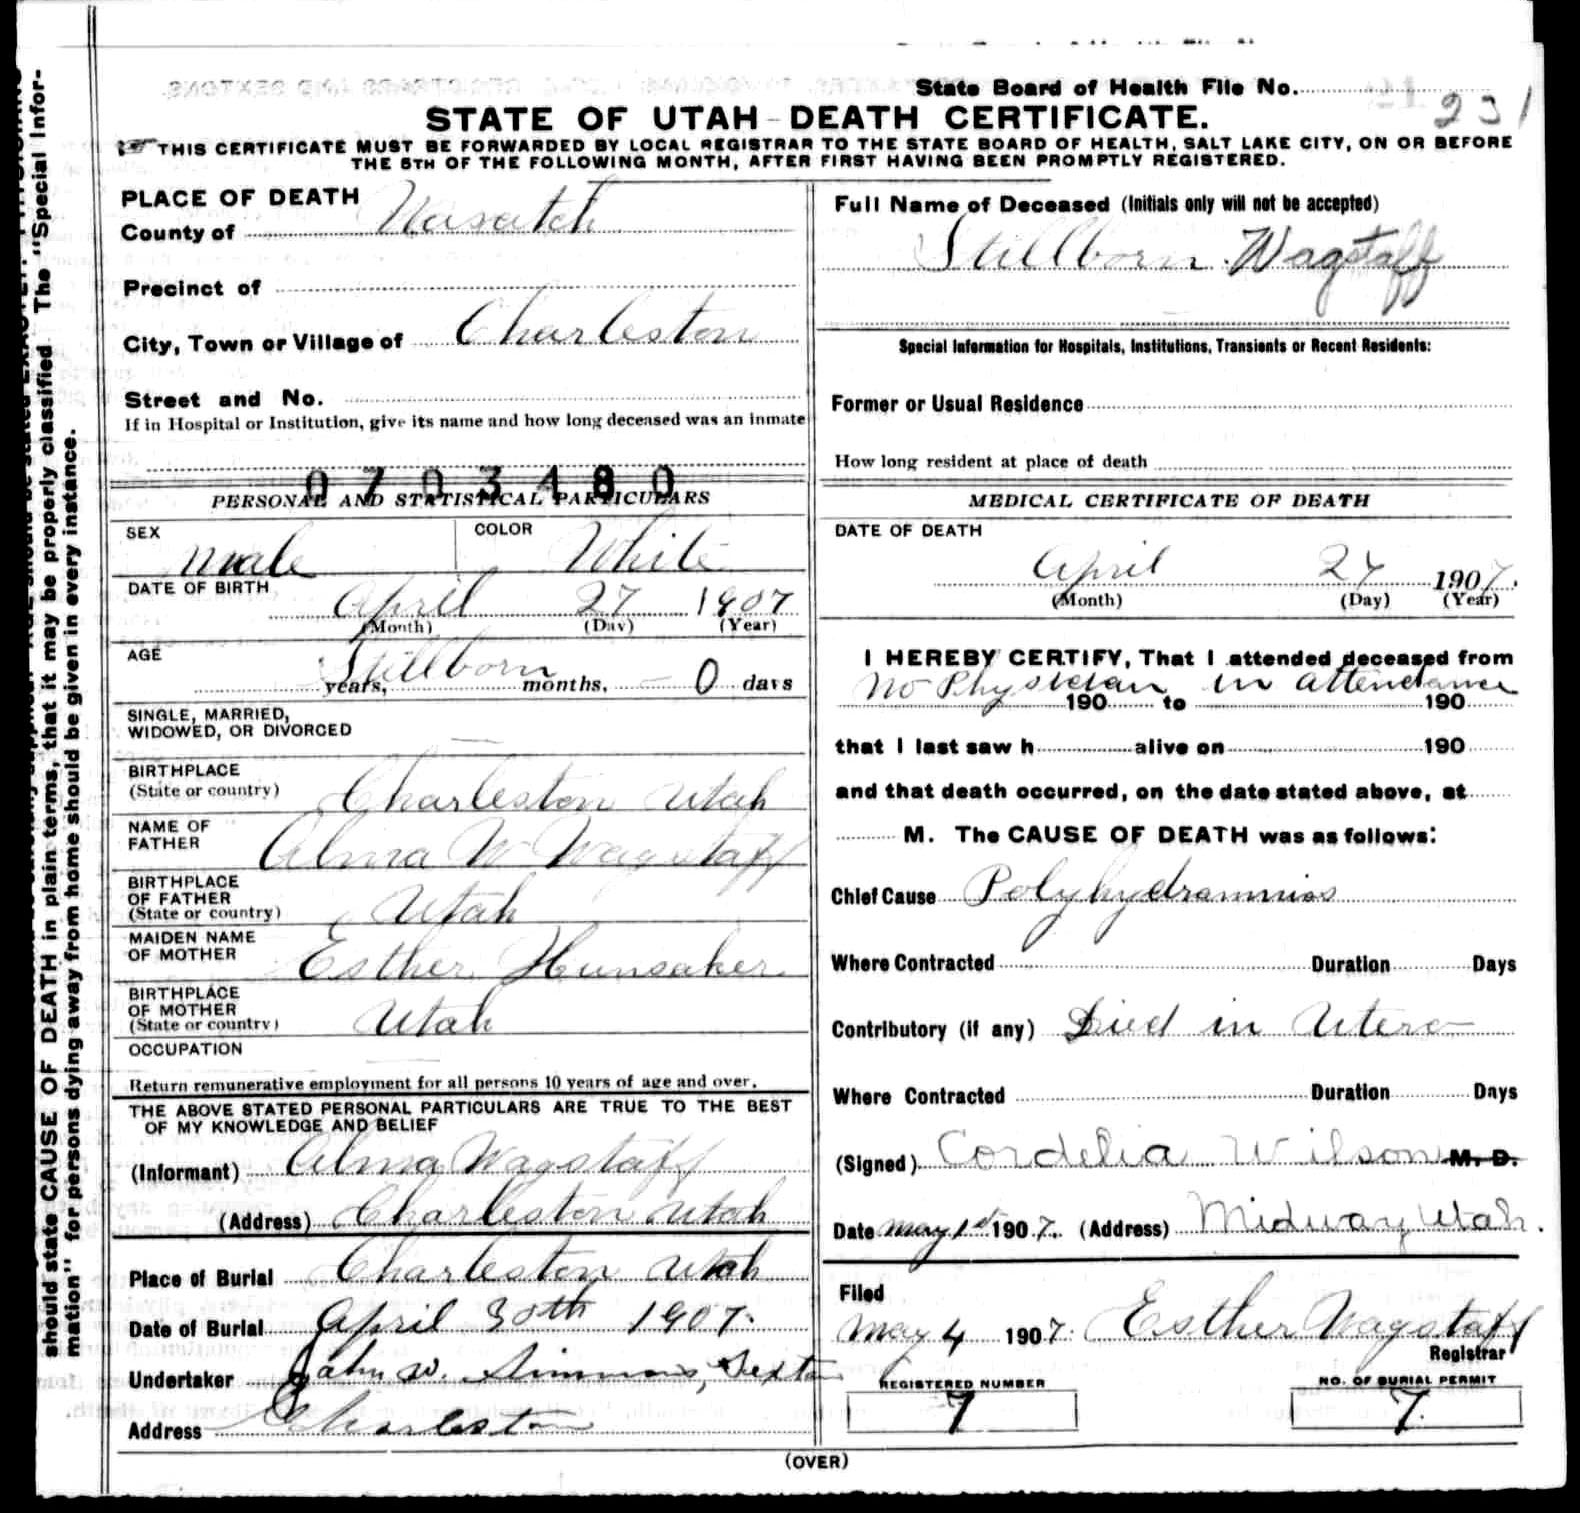 State Board of Health File No.
231
STATE OF UTAH - DEATH CERTIFICATE.
THIS CERTIFICATE MUST BE FORWARDED BY LOCAL REGISTRAR TO THE STATE BOARD OF HEALTH, SALT LAKE CITY, ON OR BEFORE
THE 5TH OF THE FOLLOWING MONTH, AFTER FIRST HAVING BEEN PROMPTLY REGISTERED.
PLACE OF DEATH
County of Wasatch
Precinct of
City, Town or Village of Charleston
Street and No.
If in Hospital or Institution, give its name and how long deceased was an inmate
0703480
PERSONAL AND STATISTICAL PARTICULARS
SEX male COLOR White
DATE OF BIRTH April 27 1907
(Month) (Day) (Year)
AGE Stillborn
years, months, 0 days
SINGLE, MARRIED,
WIDOWED, OR DIVORCED
BIRTHPLACE
(State or country) Charleston Utah
NAME OF
FATHER Alma W Wagstaff
BIRTHPLACE
OF FATHER
(State or country) Utah
MAIDEN NAME
OF MOTHER Esther Hunsaker
BIRTHPLACE
OF MOTHER
(State or country) Utah
OCCUPATION
Return remunerative employment for all persons 10 years of age and over.
THE ABOVE STATED PERSONAL PARTICULARS ARE TRUE TO THE BEST
OF MY KNOWLEDGE AND BELIEF
(Informant) Alma Wagstaff
(Address) Charleston Utah
Place of Burial Charleston Utah
Date of Burial April 30th 1907.
Undertaker John W. Simmons, Sexton
Address Charleston
Full Name of Deceased (Initials only will not be accepted)
Stillborn Wagstaff
Special Information for Hospitals, Institutions, Transients or Recent Residents:
Former or Usual Residence
How long resident at place of death
MEDICAL CERTIFICATE OF DEATH
DATE OF DEATH
April 1907.
(Month) (Day) (Year)
I HEREBY CERTIFY, That I attended deceased from
No Physician in attendance
190 to 190
that I last saw h alive on 190
and that death occurred, on the date stated above, at
M. The CAUSE OF DEATH was as follows:
Chief Cause Polyhydramnios
Where Contracted Duration Days
Contributory (if any) Died in Utero
Where Contracted Duration Days
(Signed) Cordelia Wilson M. D.
Date May 1st 1907. (Address) Midway Utah.
Filed
May 4 1907. Esther Wagstaff
Registrar
REGISTERED NUMBER
7
NO. OF BURIAL PERMIT
7.
(OVER)
should state CAUSE OF DEATH in plain terms, that it may be properly classified. The "Special Infor-
mation" for persons dying away from home should be given in every instance.